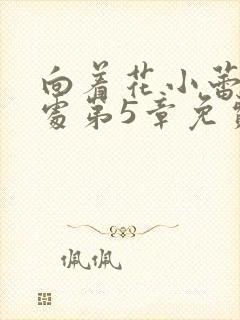 向着花小蕾
处第5章免费
佩佩